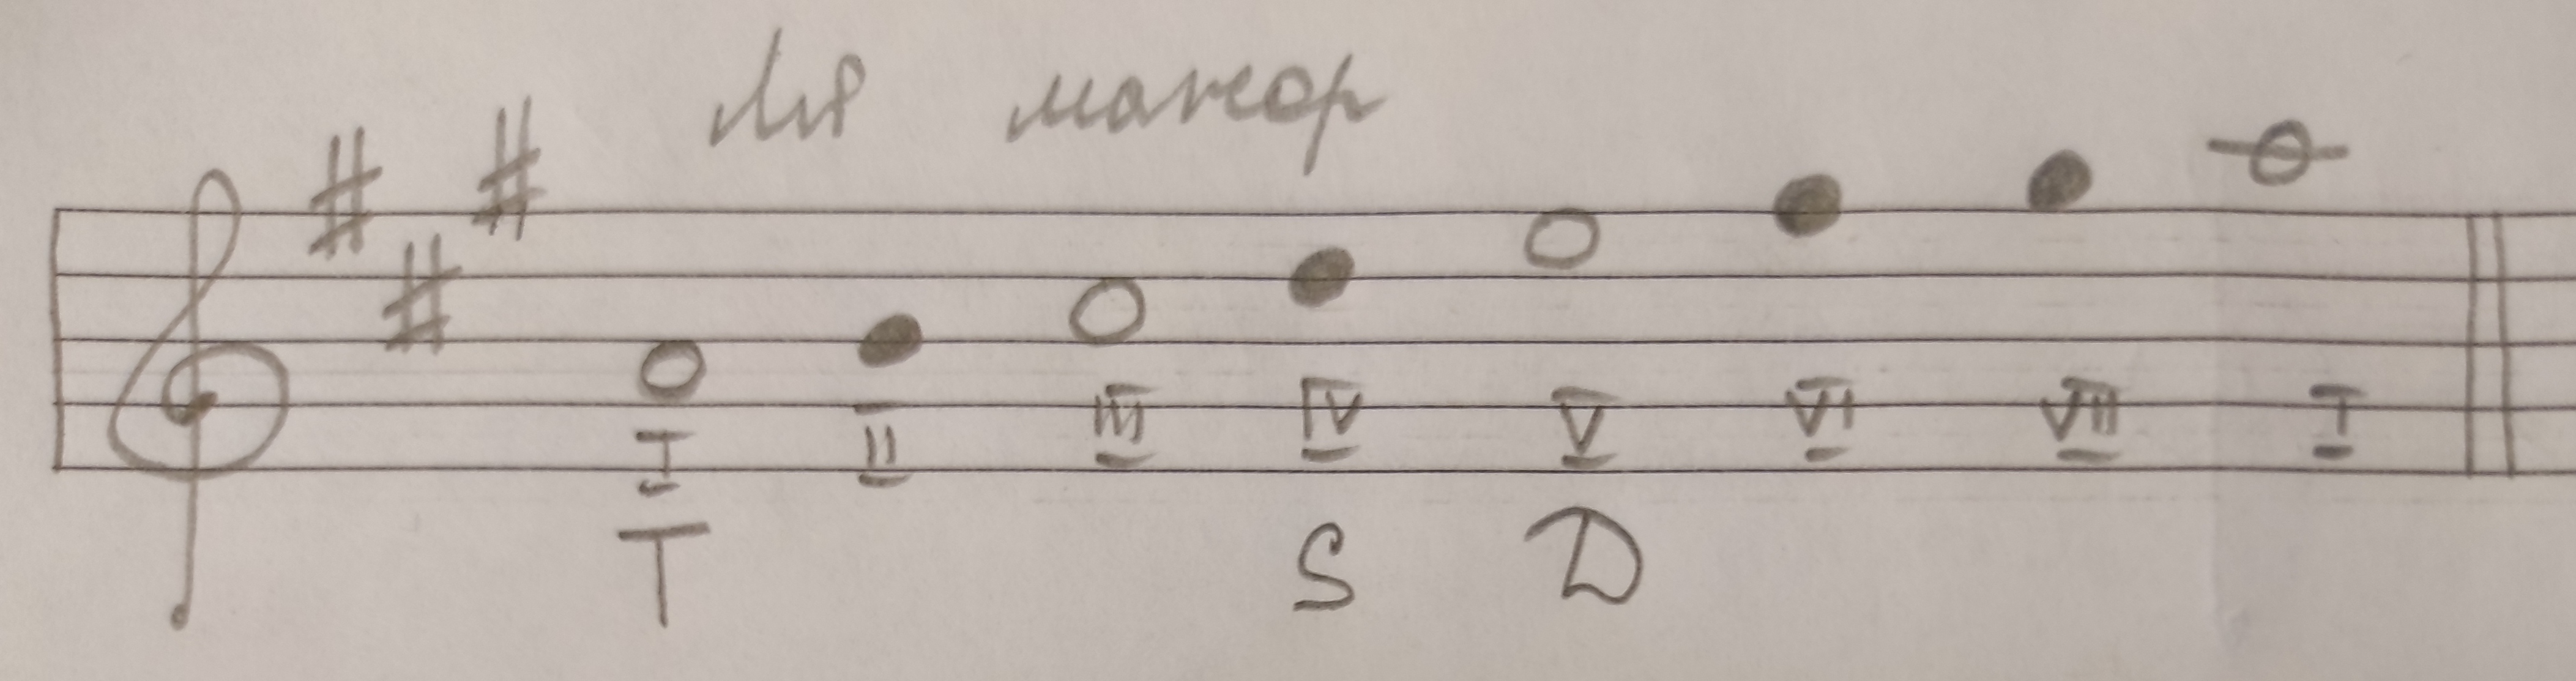 Ля мажор
I II III IV V VI VII I
T S D